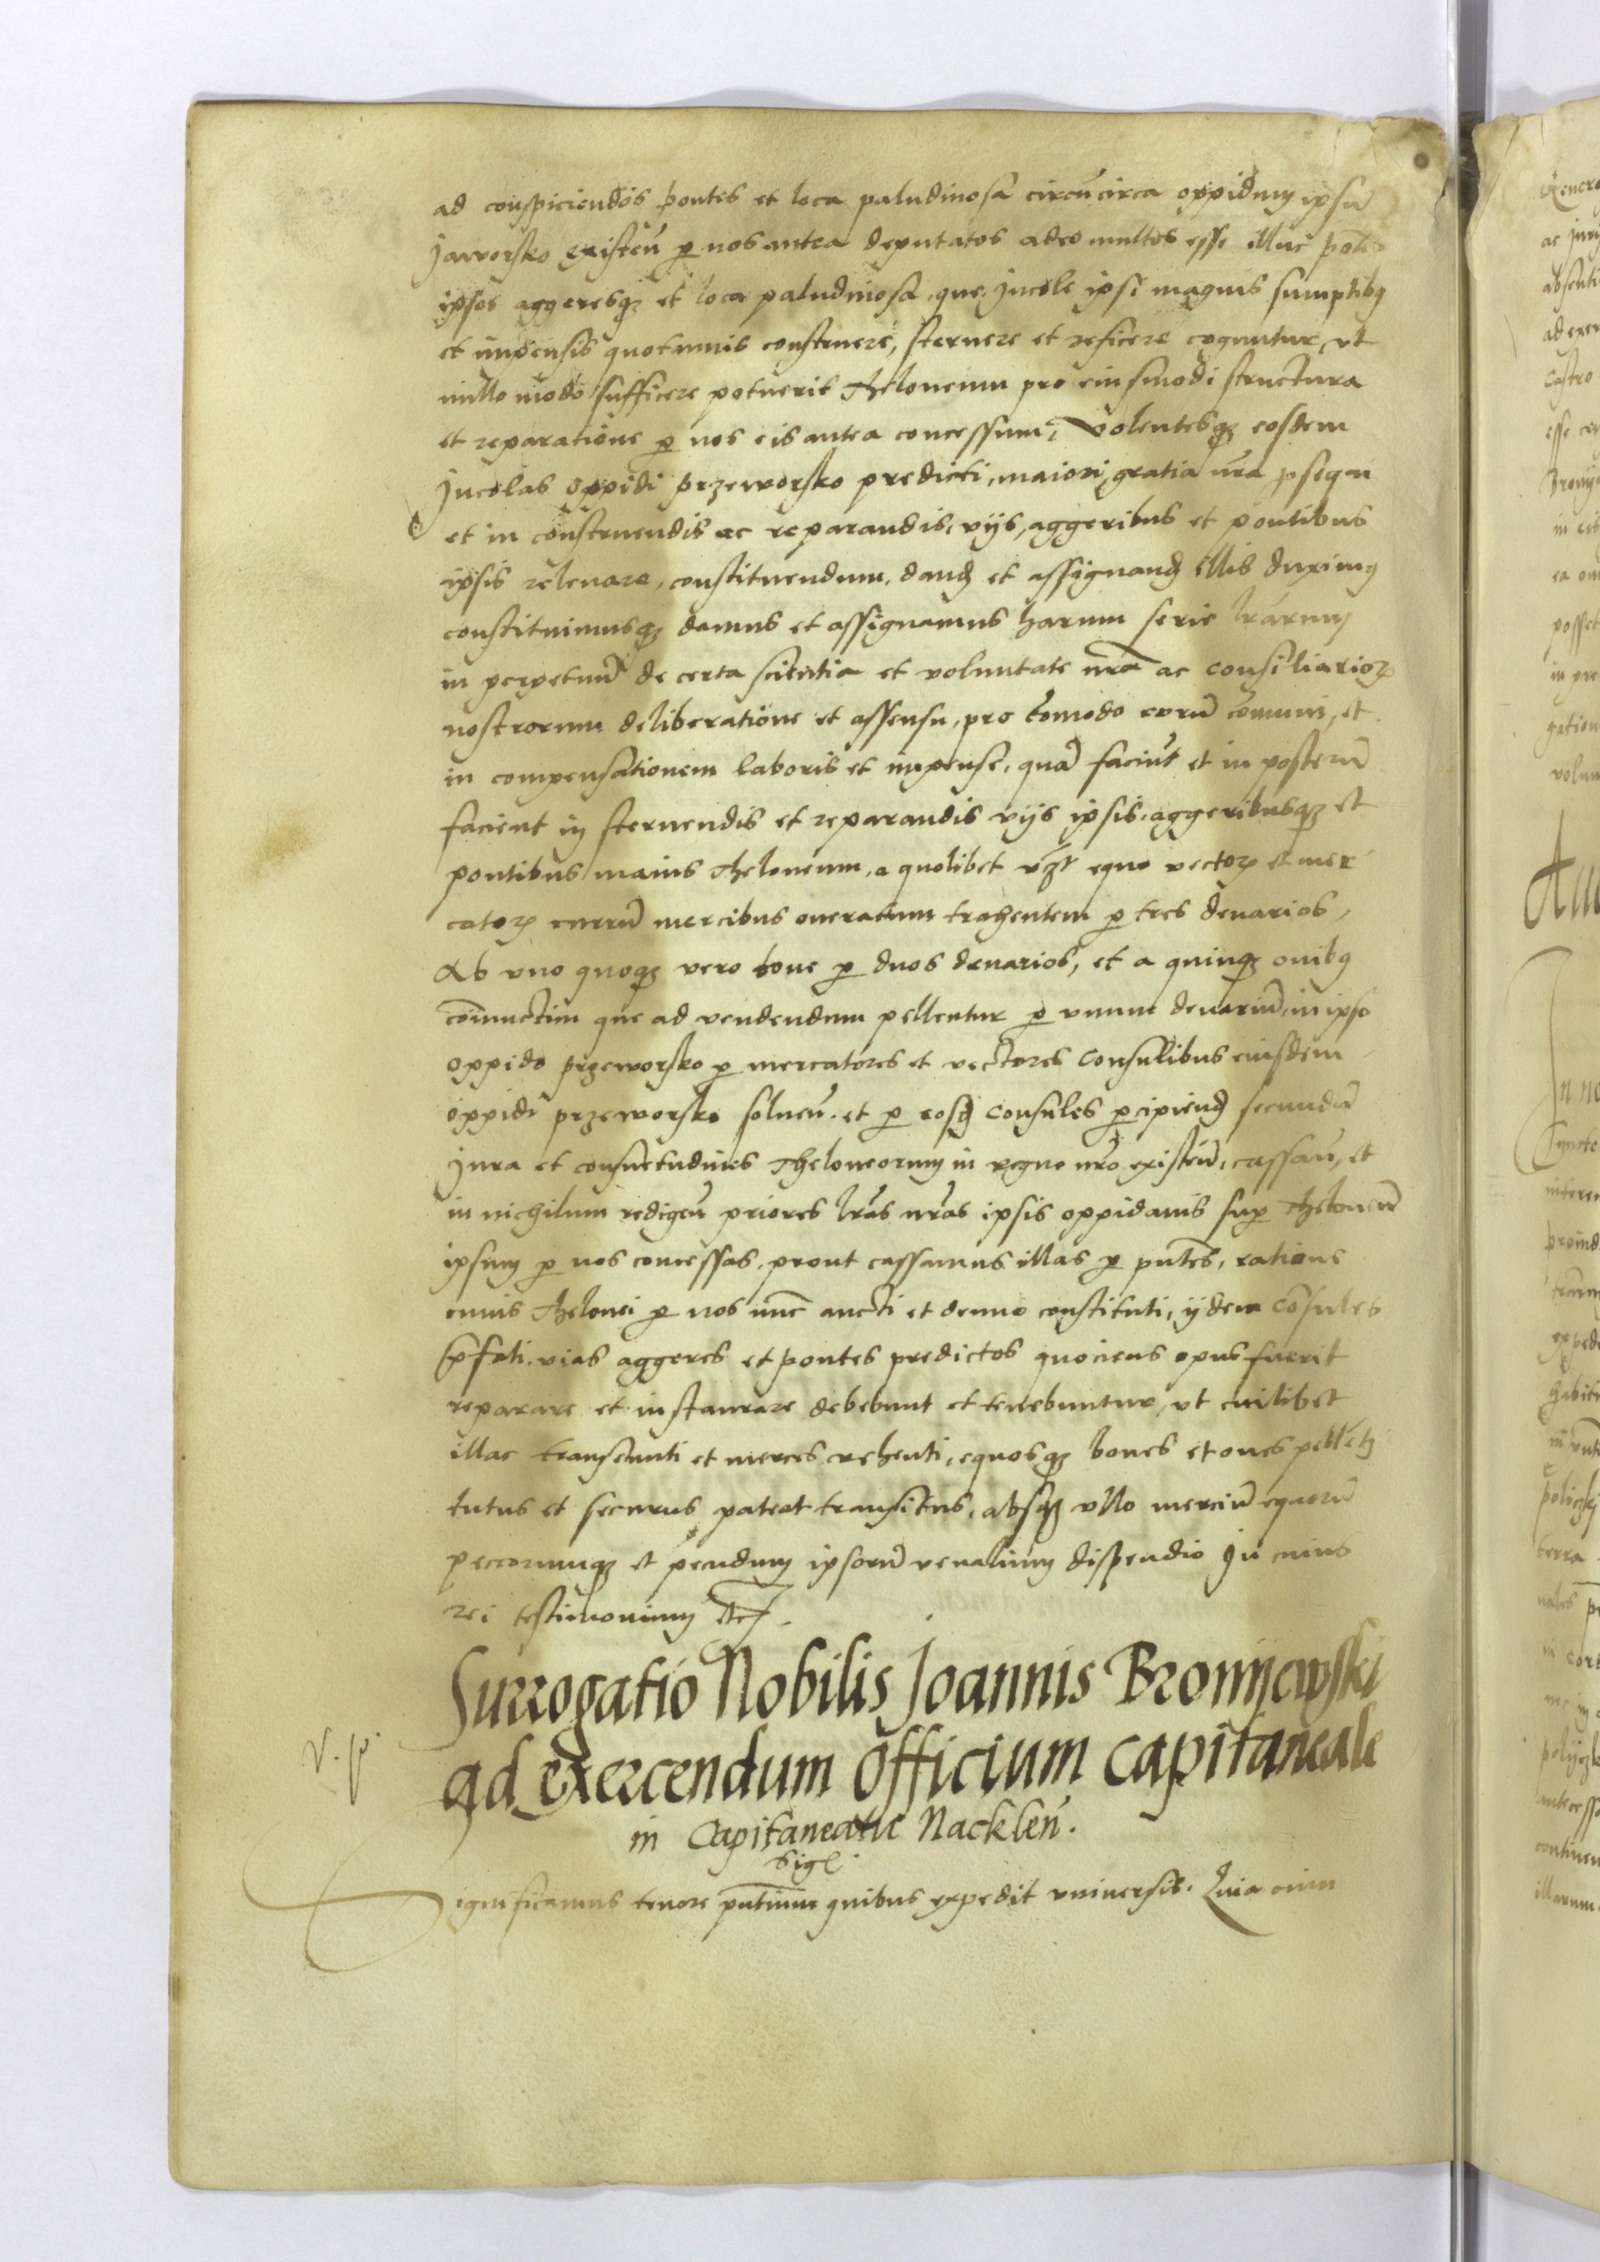 ad conspiciendos pontes et loca paludinosa circūcirca oppidum ipsū
Jaworsko existeñ p nos antea deputatos adeo multos esse illuc pōtes
ipsos aggeresqз et loca paludinosa, que Jncole ipsi magnis sumptibꝰ
et impensis quotannis construere, sternere et reficere coguntur, vt
nullo modo sufficere potuerit theloneum pro eiusmodi structura
et reparatione p nos eis antea concessum, Volentesqз eosdem
Jncolas oppidi przeworsko predicti, maiori gratia nr̄a ꝓsequi
et in construendis ac reparandis, vijs, aggeribus et pontibus
ipsis releuare, constituendum, dand et assignand illis duximꝰ
constituimusqз damus et assignamus harum serie lr̄arum
in perpetuū de certa scientia et voluntate nr̄a ac consiliarioꝝ
nostrorum deliberatione et assensu, pro cōmodo eorū cōmuni, et
in compensationem laboris et impense, quā faciūt et in posterū
facient in sternendis et reparandis vijs ipsis, aggeribusqз et
pontibus maius theloneum, a quolibet vꝫt equo vectoꝝ et mer
catoꝝ currū mercibus oneratum trahentem p tres denarios,
Ab vno quoqз vero boue p duos denarios, et a quinqз ouibꝰ
coniunctim que ad vendendum pellentur p vnum denariū, in ipso
oppido przeworsko p mercatores et vectores Consulibus eiusdem
oppidi przeworsko solueñ. et p eosd Consules pcipiend secundū
Jura et consuetudines theloneorum in regno nr̄o existeñ, cassañ, et
in nichilum redigeñ priores lr̄as nr̄as ipsis oppidanis sup theloneū
ipsum p nos concessas, prout cassamus illas p pn̄tes, ratione
cuius thelonei p nos nūc aucti et denuo constituti, ijdem Cōsules
p̄fati, vias aggeres et pontes predictos quociens opus fuerit
reparare et instaurare debebunt et tenebuntur, vt cuilibet
illac transeunti et merces vehenti, equosqз boues et oues pellēti
tutus et securus pateat transitus, absqз vllo merciū equorū
pecorumqз et pecudum ipsorū venalium dispendio Jn cuius
rei testimonium etc.
Surrogatio Nobilis Joannis Bronijewski
ad exercendum officium capitaneale
in Capitaneatu Nackleñ.
Sigl
Significamus tenore pn̄tium quibus expedit vniuersis. Quia cum